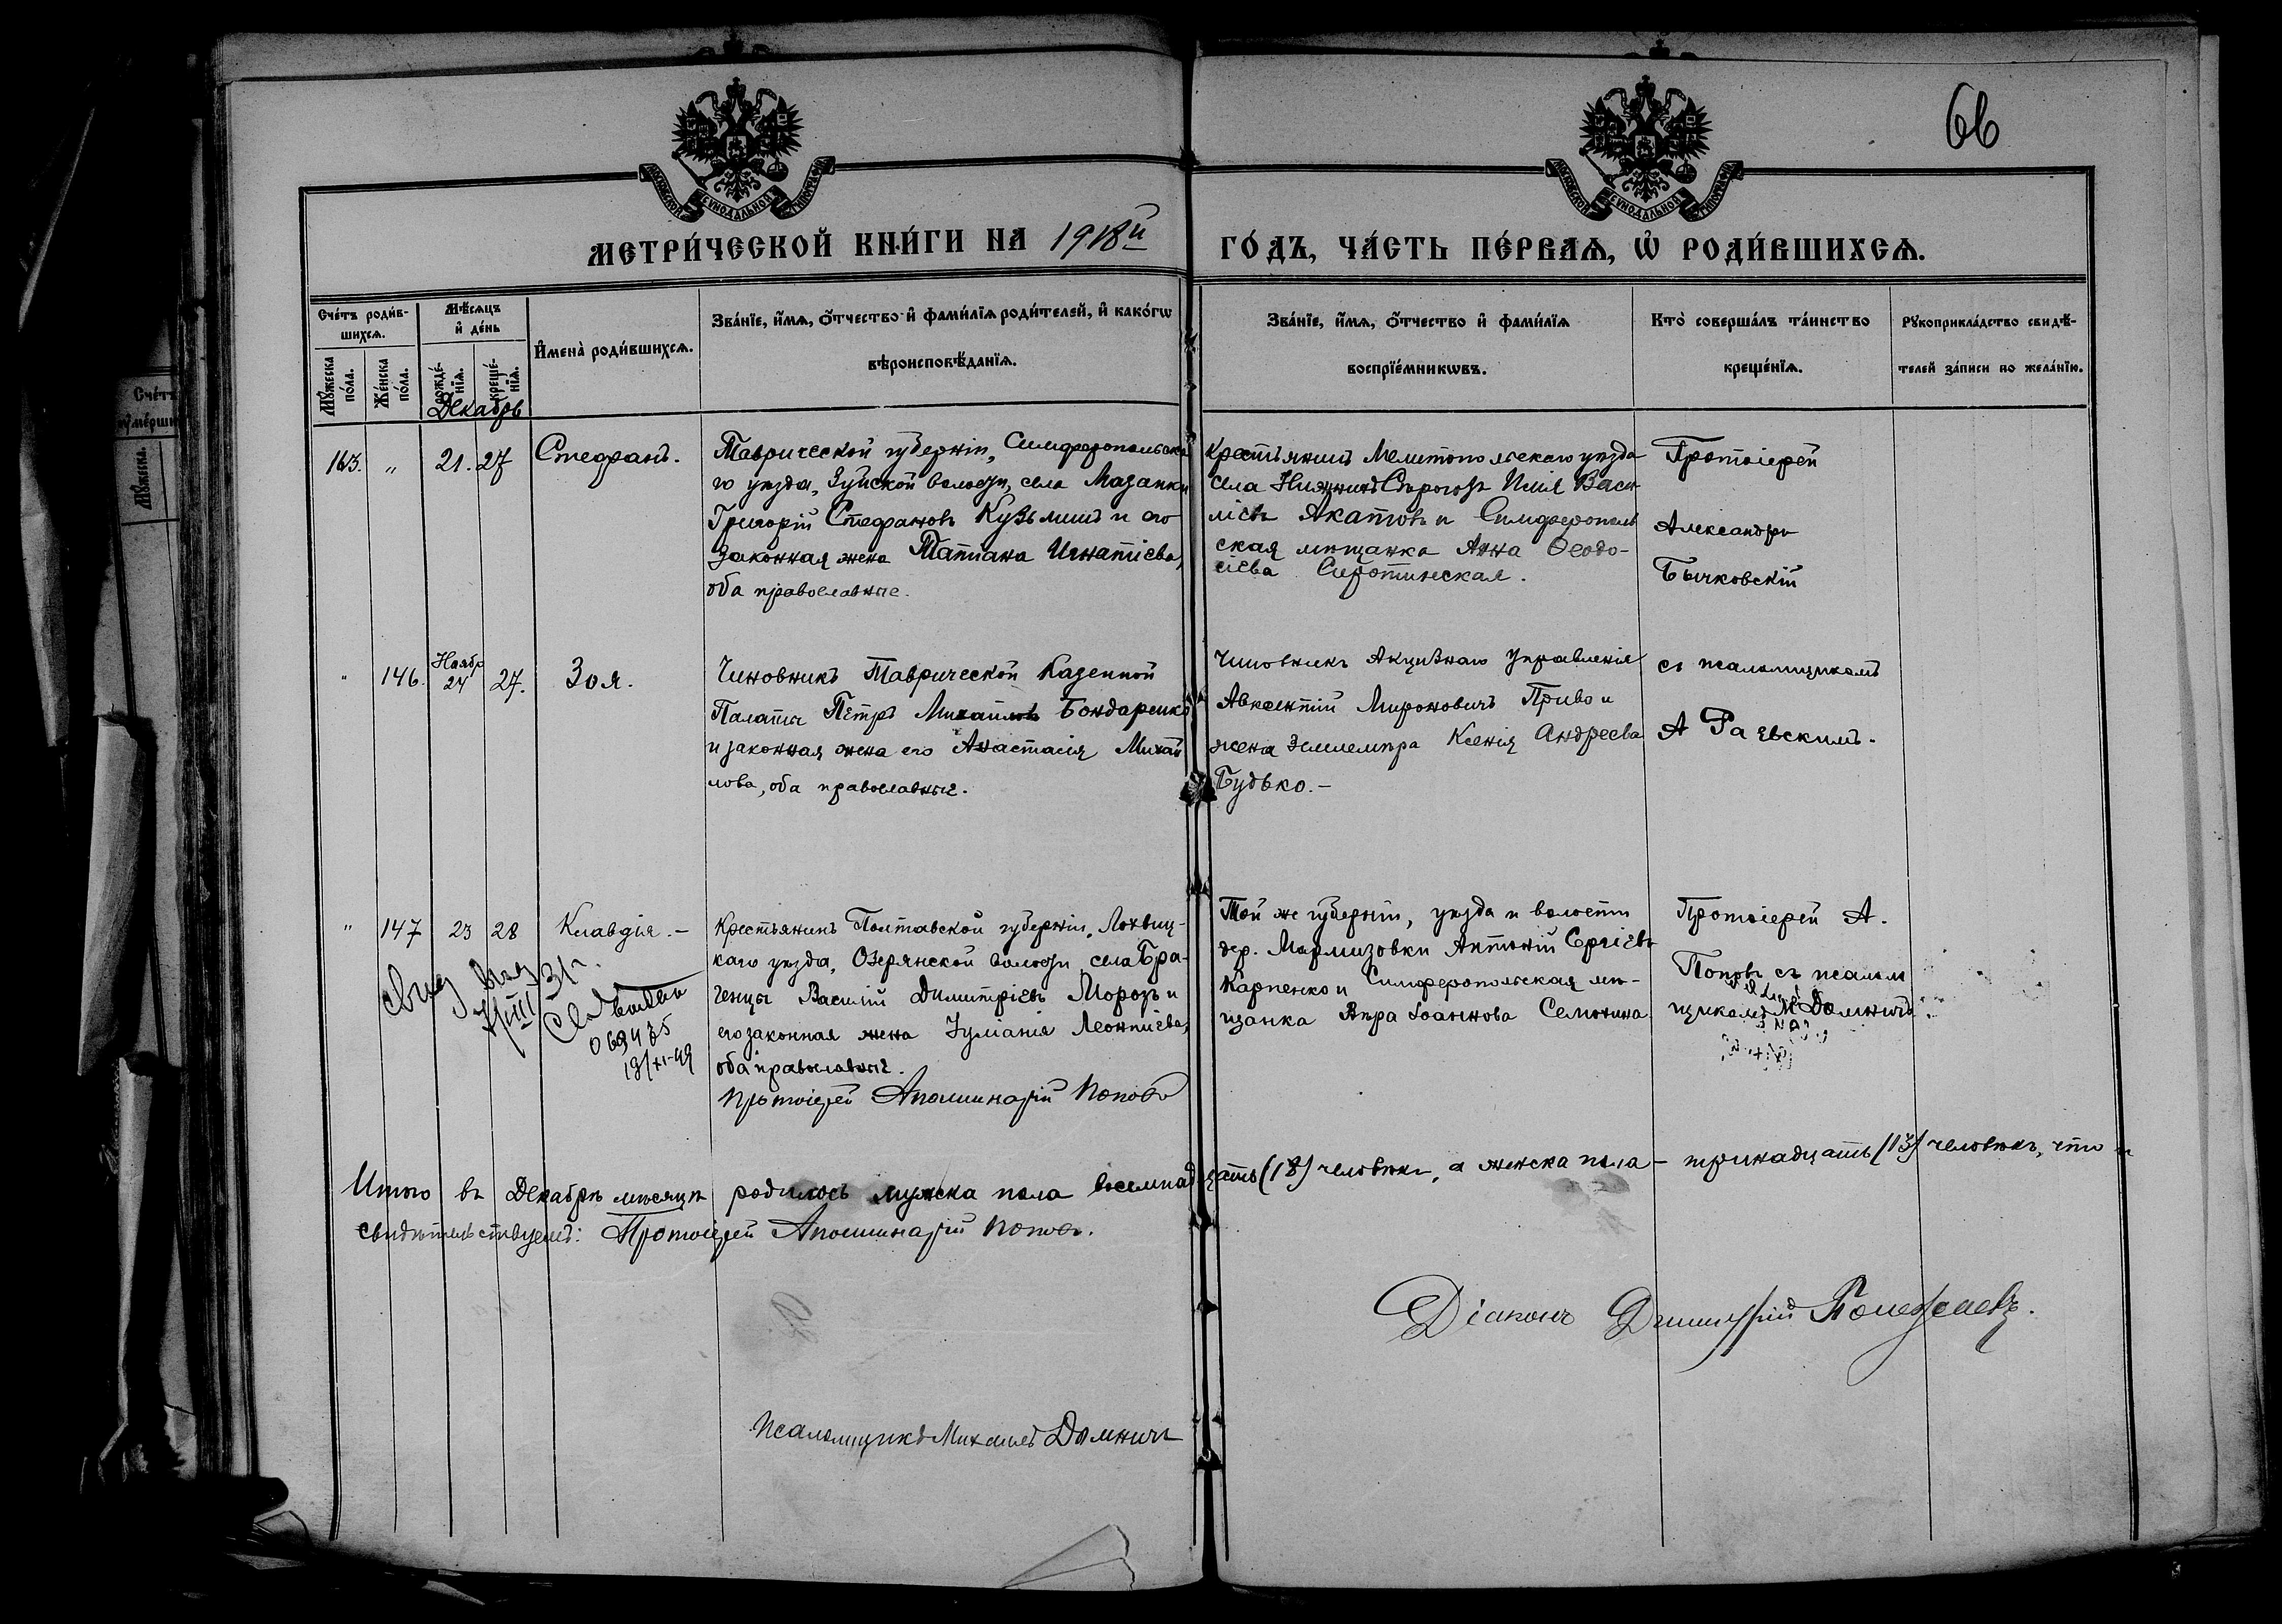 66
МОСКОВСКОЙ СѴНОДАЛЬНОЙ ТИПОГРАФІИ
МОСКОВСКОЙ СѴНОДАЛЬНОЙ ТИПОГРАФІИ
МЕТРИ́ЧЕСКОЙ КНИ́ГИ НА 1918й
ГО́ДЪ, ЧА́СТЬ ПЕ́РВАѦ, Ѡ҆ РОДИ́ВШИХСѦ.
Сче́тъ роди́в-
шихсѧ.
Мꙋ́жеска по́ла.
Же́нска по́ла.
Мѣ́сѧцъ
и҆ де́нь
рожде́-нїѧ.
креще́-нїѧ.
И҆мена̀ роди́вшихсѧ.
Зва́нїе, и҆́мѧ, ѻ҆́тчество и҆ фами́лїѧ роди́телей, и҆ како́гѡ
вѣроисповѣ́данїѧ.
Зва́нїе, и҆́мѧ, ѻ҆́тчество и҆ фами́лїѧ
воспрїе́мникѡвъ.
Кто̀ соверша́лъ та́инство
креще́нїѧ.
Рꙋкоприкла́дство свидѣ́-
телей за́писи по жела́нїю.
Декабрь
163. " 21. 27 Стефанъ.
Таврической губерніи, Симферопольска-
го уѣзда, Зуйской волости, села Мазанки
Григорій Стефановъ Кузьминъ и его
законная жена Татіана Игнатіева,
оба православные.
Крестьянинъ Мелитопольскаго уѣзда
села Нижнихъ Сѣрогозъ Илія Васи-
ліевъ Акатовъ и Симферополь
ская мѣщанка Анна Ѳеодо-
сіева Сиротинская.
Протоіерей
Александръ
Бычковскій
" 146. Ноябр 24 27. Зоя.
Чиновникъ Таврической Казенной
Палаты Петръ Михаиловъ Бондаренко
и законная жена его Анастасія Михаи
лова, оба православные.
Чиновникъ Акцизнаго Управленія
Авксентій Мироновичъ Приво и
жена землемѣра Ксенія Андреева
Будько.-
съ псаломщикомъ
А Раевскимъ.
" 147 23 28 Клавдія.-
7/III 31 г.
069485
18/XI-49
Крестьянинъ Полтавской губерніи, Лохвиц-
каго уѣзда, Озерянской волости села Бра-
генцы Василій Димитріевъ Морозъ и
его законная жена Іуліанія Леонтіева,
оба православные.
Протоіерей Аполлинарій Поповъ
Той же губерніи, уѣзда и волости
дер. Мармизовки Антоній Сергіевъ
Карпенко и Симферопольская мѣ-
щанка Вѣра Іоаннова Семонина
Протоіерей А.
Поповъ съ псалом
щикомъ М Домничъ
Итого въ Декабрѣ мѣсяцѣ родилось мужска пола восемнадцать (18) человѣкъ, а женска пола - тринадцать (13) человѣкъ, что и
свидѣтельствуемъ: Протоіерей Аполлинарій Поповъ.
Діаконъ Димитрій
Псаломщикъ Михаилъ Домничъ
Сче́тъ
Мꙋ́жеска